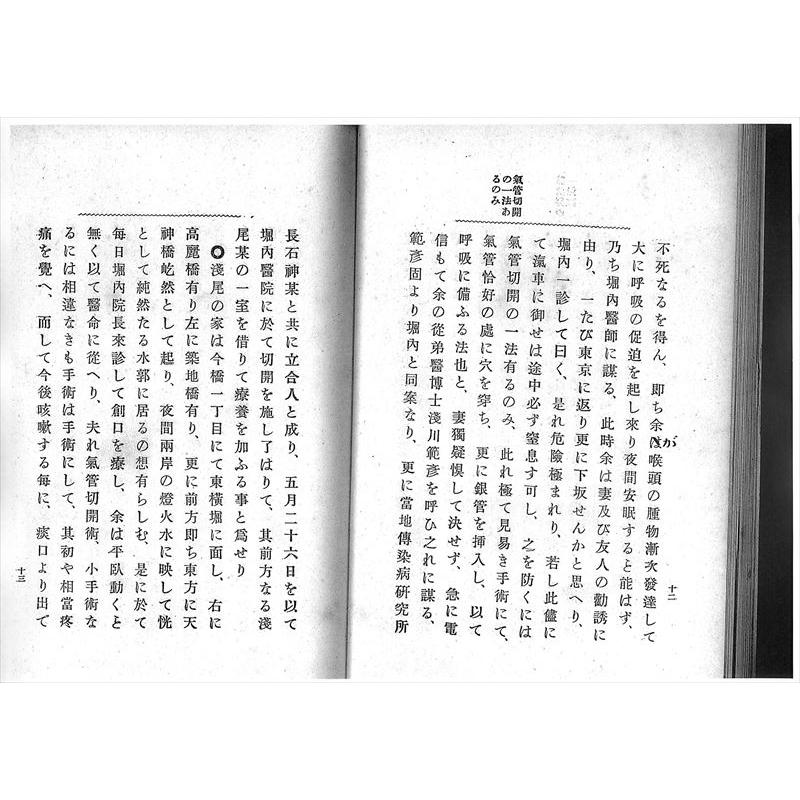 氣管切開
の一法あ
るのみ
不死なるを得ん、卽ち余が喉頭の腫物漸次發達して
大に呼吸の促迫を起し來り夜間安眠すると能はず、
乃ち堀內醫師に謀る、此時余は妻及び友人の勸誘に
由り、一たび東京に返り更に下坂せんかと思へり、
堀內一診して曰く、是れ危險極まれり、若し此儘に
て滊車に御せは途中必ず窒息す可し、之を防くには
氣管切開の一法有るのみ、此れ極て見易き手術にて、
氣管恰好の處に穴を穿ち、更に銀管を挿入し、以て
呼吸に備ふる法也と、妻獨疑惧して決せず、急に電
信もて余の從弟醫博士淺川範彥を呼ひ之れに謀る、
範彥固より堀內と同案なり、更に當地傳染病硏究所
十二
長石神某と共に立合人と成り、五月二十六日を以て
堀內醫院に於て切開を施し了はりて、其前方なる淺
尾某の一室を借りて療養を加ふる事と爲せり
◎淺尾の家は今橋一丁目にて東橫堀に面し、右に
高麗橋有り左に築地橋有り、更に前方卽ち東方に天
神橋屹然として起り、夜間兩岸の燈火水に映して恍
として純然たる水郭に居るの想有らしむ、是に於て
每日堀內院長來診して創口を療し、余は平臥動くと
無く以て醫命に從へり、夫れ氣管切開術、小手術な
るには相違なきも手術は手術にして、其初や相當疼
痛を覺へ、而して今後咳嗽する每に、痰口より出て
十三